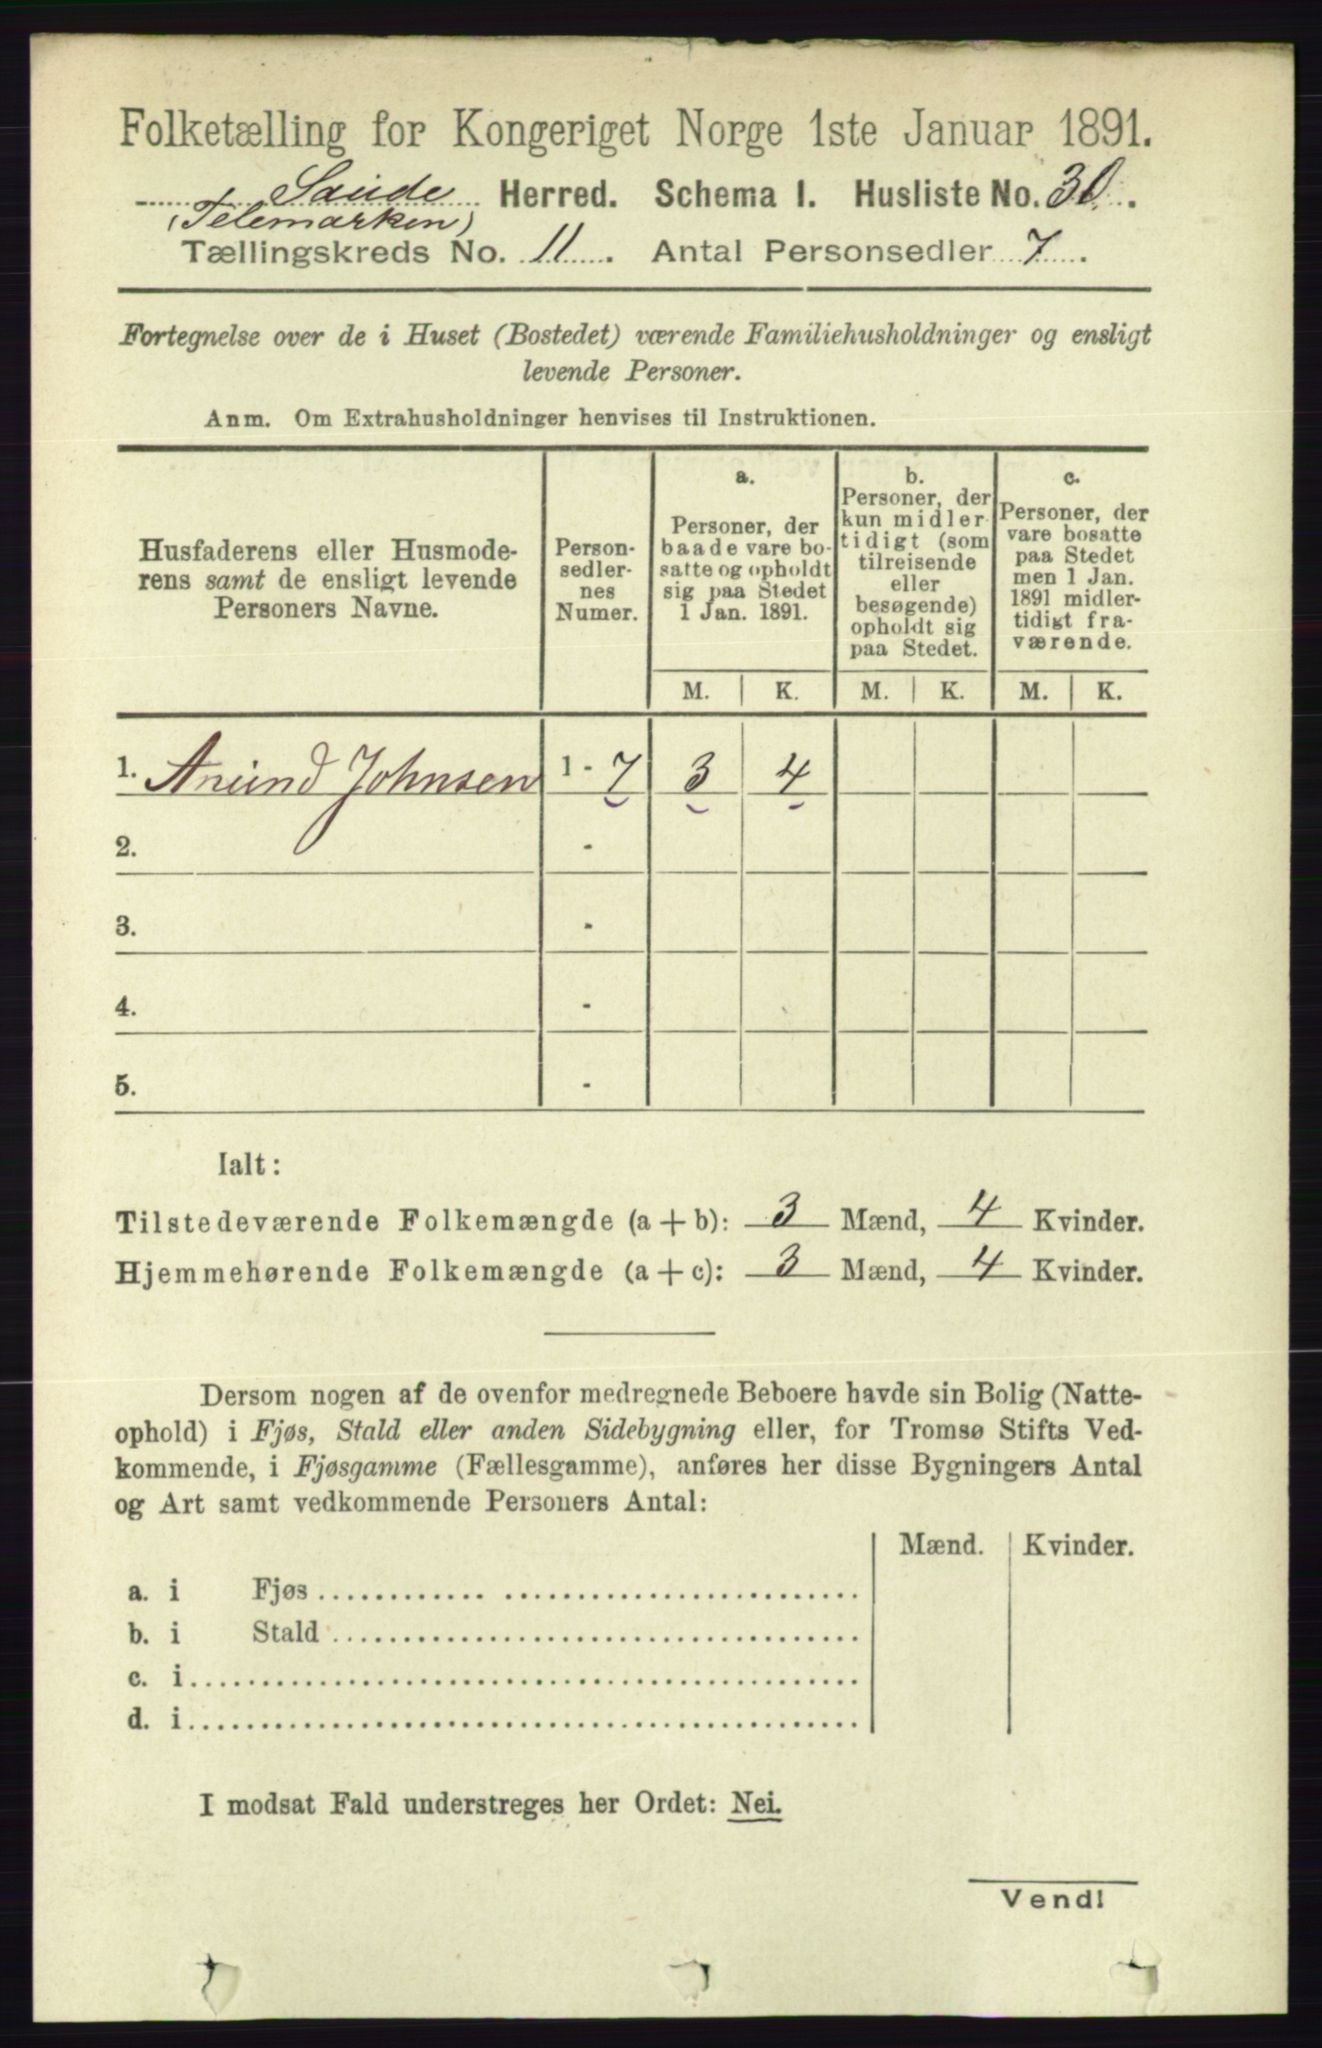 Folketælling for Kongeriget Norge 1ste Januar 1891.
Saude Herred. Schema I. Husliste No. 30.
(Telemarken)
Tællingskreds No. 11. Antal Personsedler 7.
Fortegnelse over de i Huset (Bostedet) værende Familiehusholdninger og ensligt
levende Personer.
Anm. Om Extrahusholdninger henvises til Instruktionen.
Husfaderens eller Husmode-
rens samt de ensligt levende
Personers Navne.
Person-
sedler-
nes
Numer.
a.
Personer, der
baade vare bo-
satte og opholdt
sig paa Stedet
1 Jan. 1891.
b.
Personer, der
kun midler-
tidigt (som
tilreisende
eller
besøgende)
opholdt sig
paa Stedet.
c.
Personer, der
vare bosatte
paa Stedet
men 1 Jan.
1891 midler-
tidigt fra-
værende.
M. K. M. K. M. K.
1. Anund Johnsen 1 - 7 3 4
2. -
3. -
4. -
5. -
Ialt:
Tilstedeværende Folkemængde (a + b): 3 Mænd, 4 Kvinder.
Hjemmehørende Folkemængde (a + c): 3 Mænd, 4 Kvinder.
Dersom nogen af de ovenfor medregnede Beboere havde sin Bolig (Natte-
ophold) i Fjøs, Stald eller anden Sidebygning eller, for Tromsø Stifts Ved-
kommende, i Fjøsgamme (Fællesgamme), anføres her disse Bygningers Antal
og Art samt vedkommende Personers Antal:
Mænd. Kvinder.
a. i Fjøs
b. i Stald
c. i
d. i
I modsat Fald understreges her Ordet: Nei.
Vend!